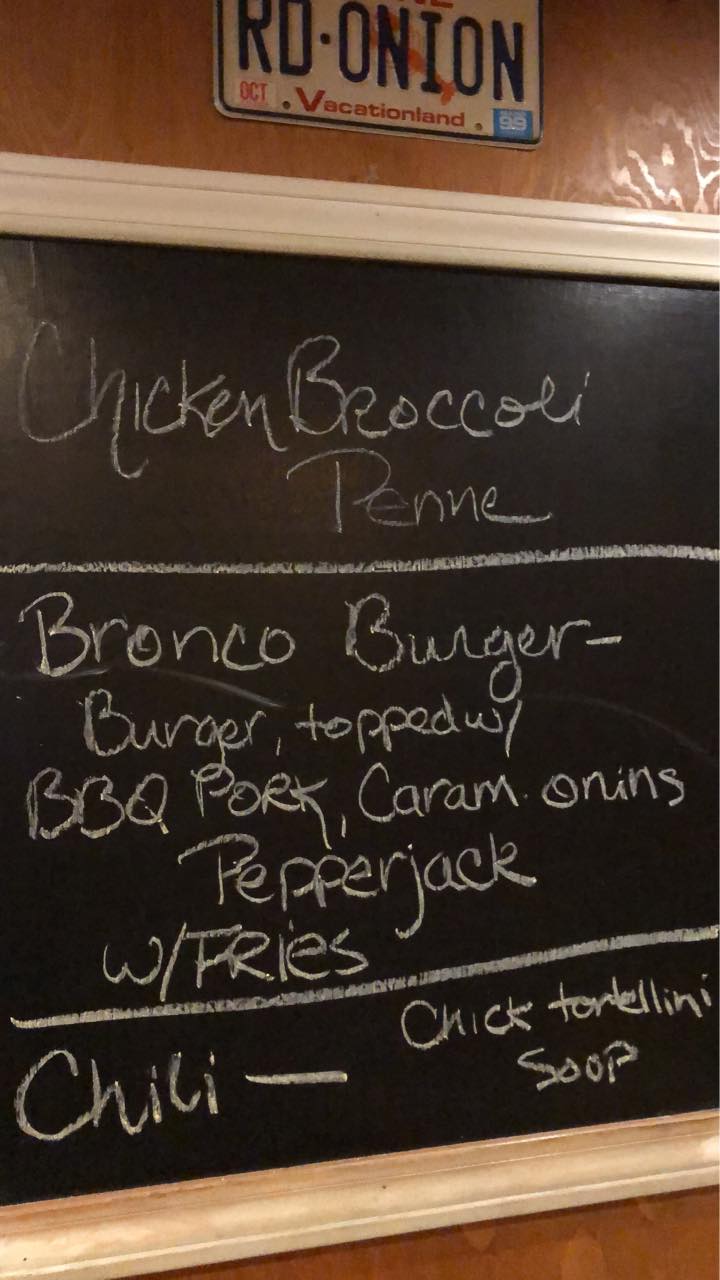 RD·ONION
OCT
Vacationland
99
Chicken Broccoli
Penne
Bronco Burger-
Burger, topped w/
BBQ Pork, Caram. onins
Pepperjack
w/FRies
Chick tortellini
Soop
Chili —